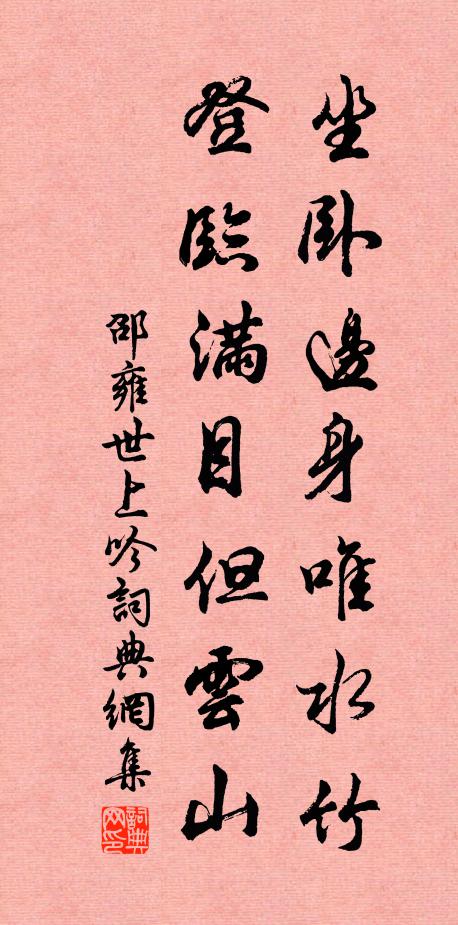 坐卧邊身唯水竹
登臨滿目但雲山
邵雍世上吟詞典網集
詞典網印